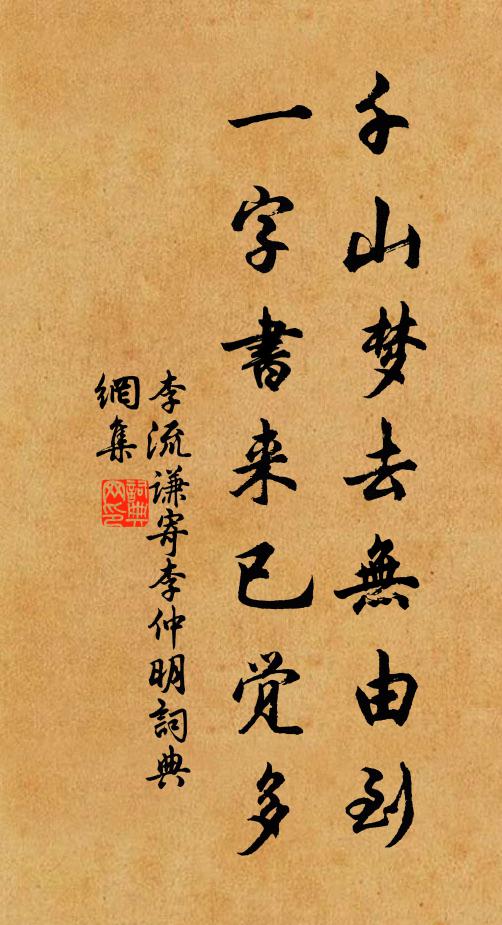 千山梦去無由到
一字書来已觉多
李流谦寄李仲明詞典
網集
詞典
网印